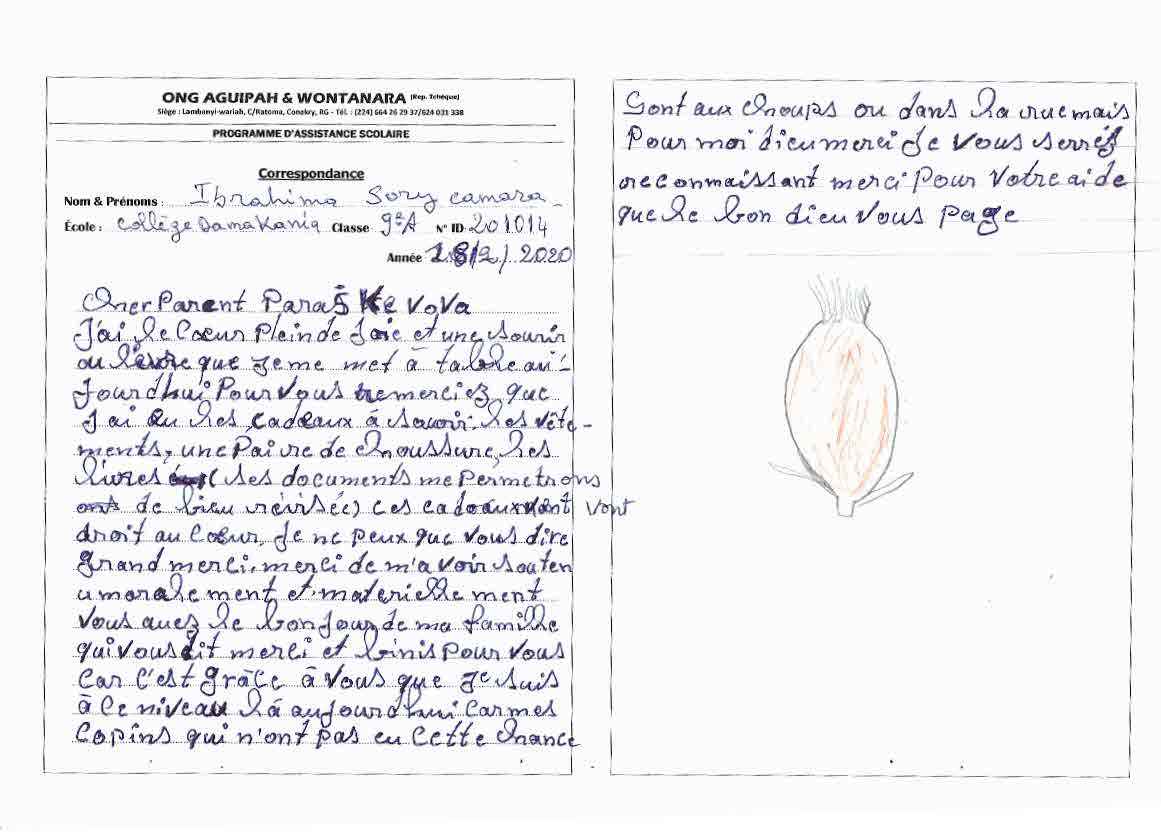 ONG AGUIPAH & WONTANARA (Rep. Tchéque)
Siège : Lambanyi-wariah, C/Ratoma, Conakry, RG - Tél. : (224) 664 26 29 37/624 031 338
PROGRAMME D'ASSISTANCE SCOLAIRE
Correspondance
Nom & Prénoms : Ibrahima Sory camara
École : Collège Damakania Classe 9e A N° ID 201014
Année 18/2/2020
Cher Parent Paraskevova
J'ai le Cœur plein de Joie et une sourir
au que Je me met à table au-
Jourdhui Pour vous remerciez que
J'ai eu les cadeaux à savoir: les vête-
ments, une Paire de choussure, les
livres (ses documents me permetrons
de bieu révisée) ces cadeaux vont
droit au Cœur, Je ne peux que vous dire
grand merci. merci de m'avoir souten
u moralement et materiellement
Vous avez le bonJour de ma famille
qui vous dit merci et binis pour vous
Car C'est grâce à vous que Je suis
à ce niveau là aujourdhui Car mes
Copins qui n'ont pas eu Cette chance
Sont aux choups ou dans la rue mais
Pour moi dieu merci Je vous serrés
reconnaissant merci Pour votre aide
que le bon dieu vous page